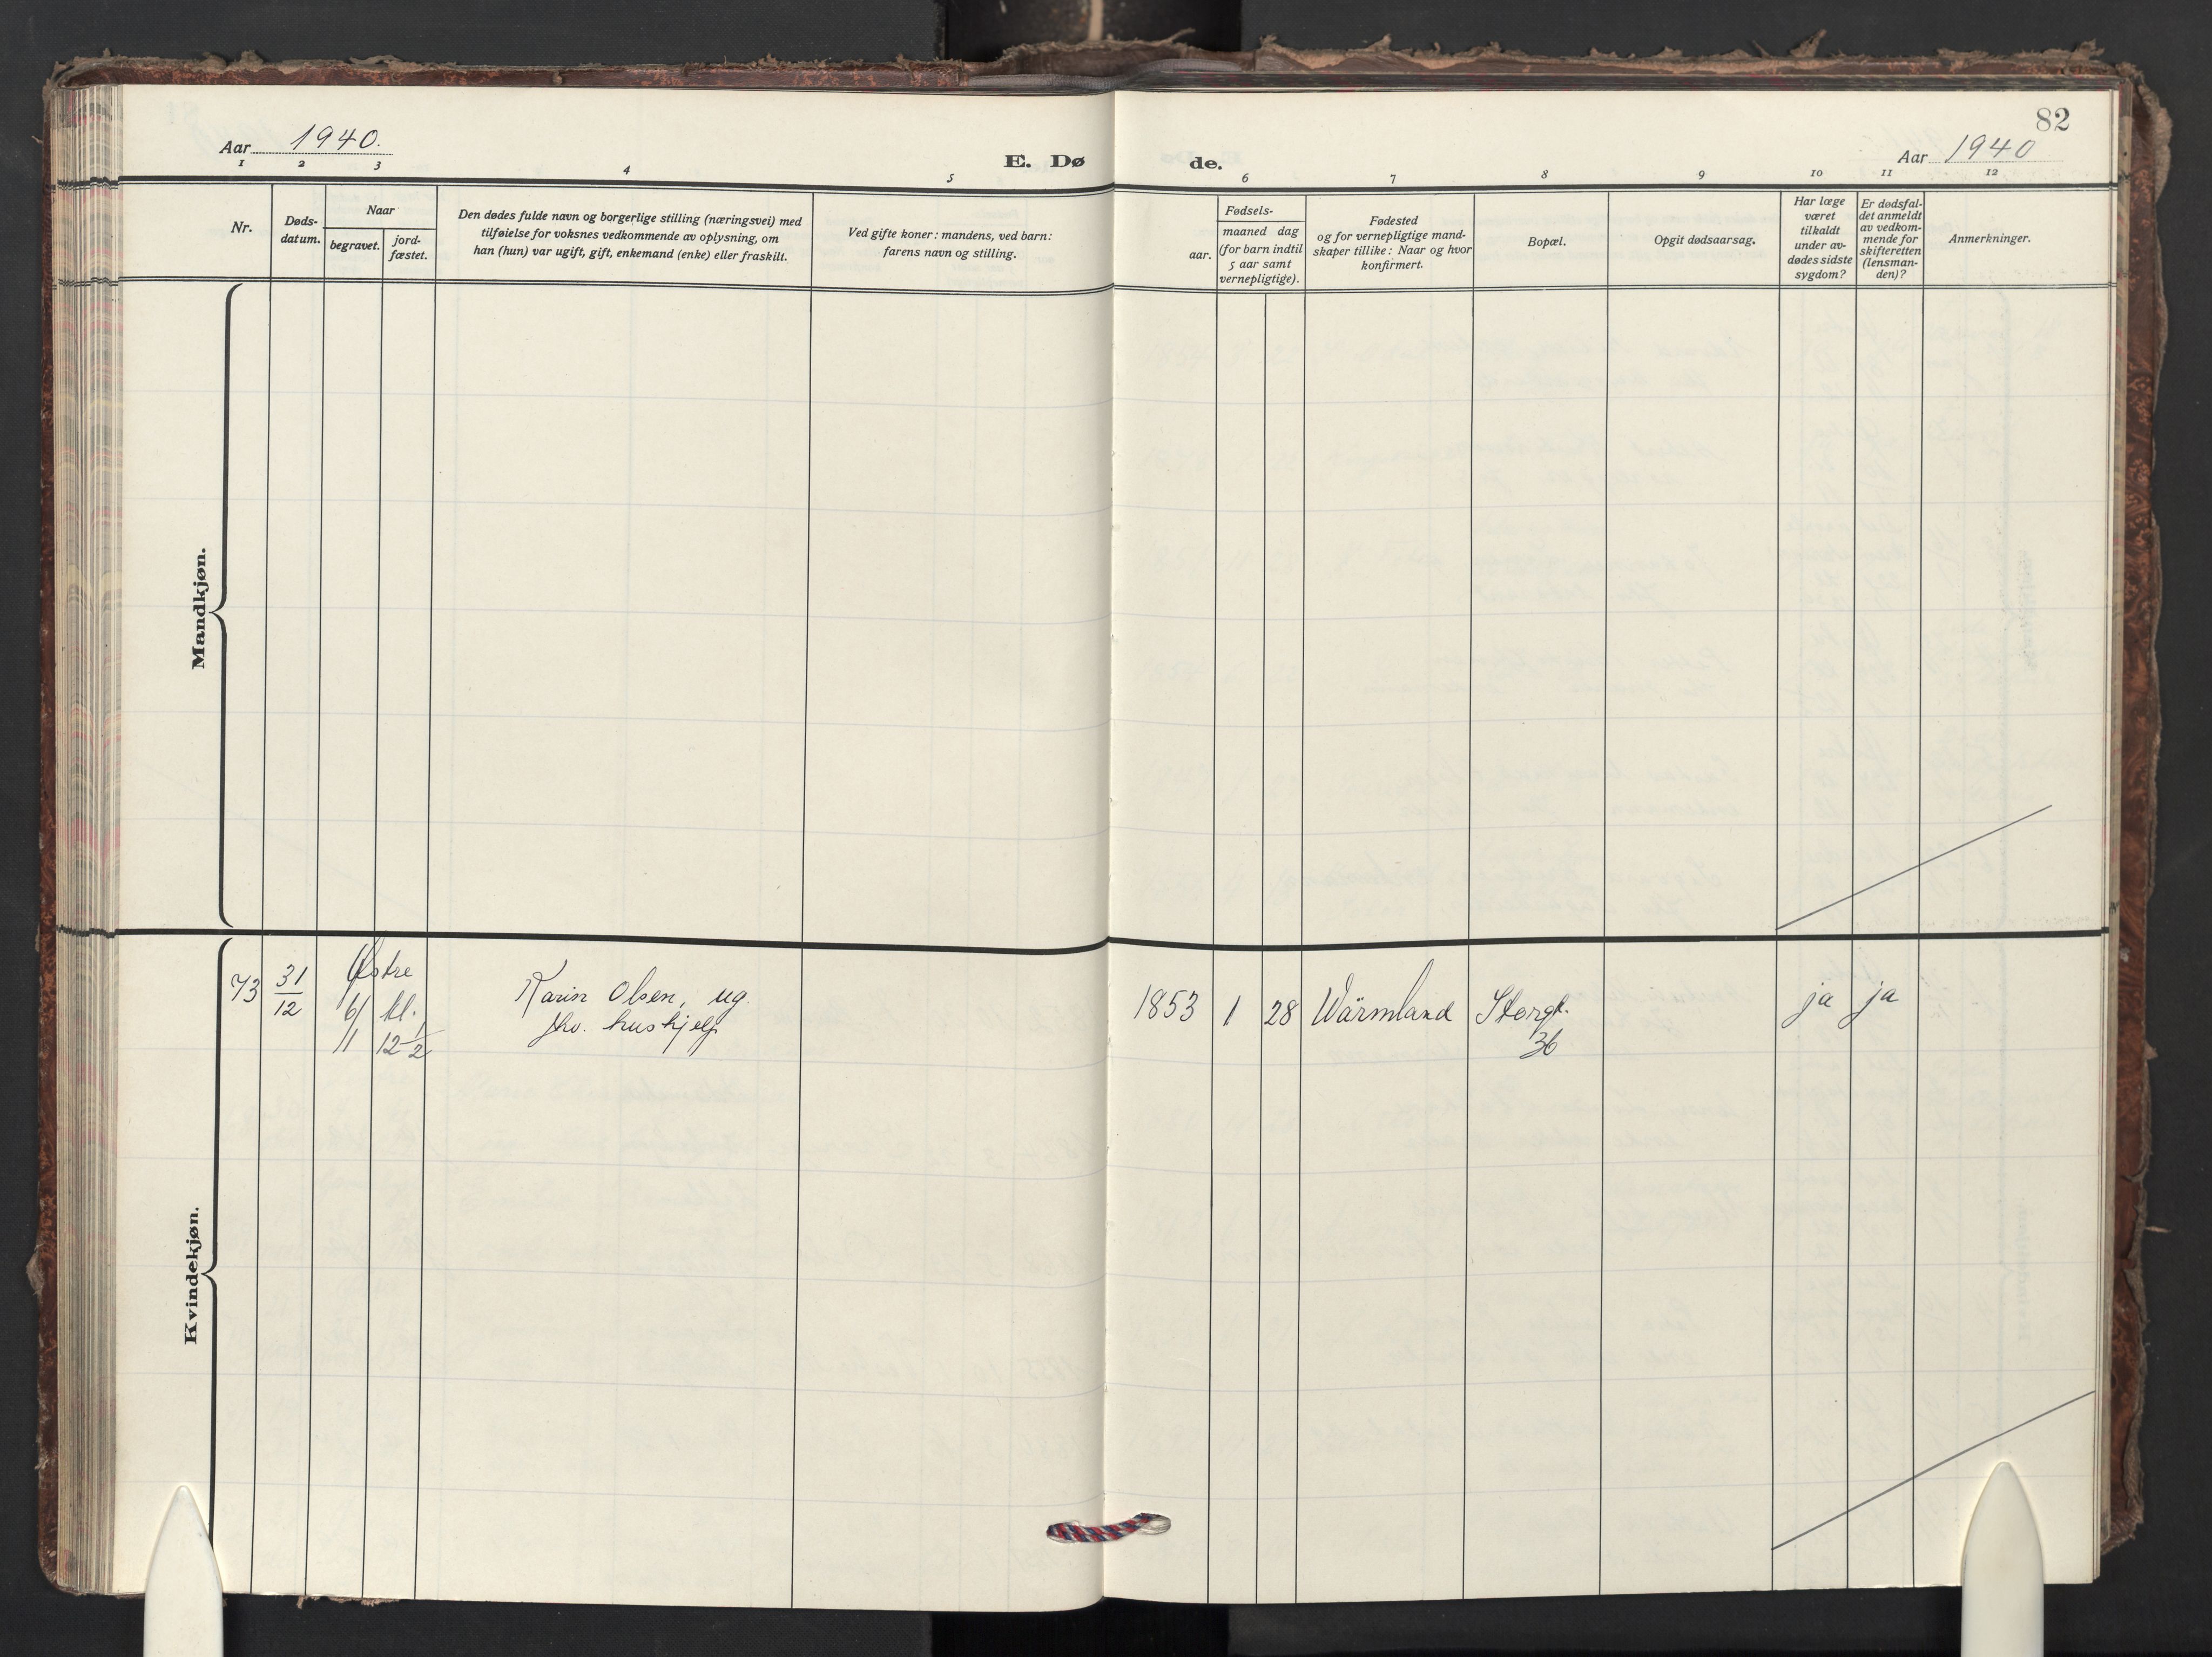 82
Aar 1940.
E. Dø
de.
Aar 1940
1 2 3 4 5 6 7 8 9 10 11 12
Nr.
Døds-
datum.
Naar
begravet.
jord-
fæstet.
Den dødes fulde navn og borgerlige stilling (næringsvei) med
tilføielse for voksnes vedkommende av oplysning, om
han (hun) var ugift, gift, enkemand (enke) eller fraskilt.
Ved gifte koner: mandens, ved barn:
farens navn og stilling.
aar.
Fødsels-
maaned dag
(for barn indtil
5 aar samt
vernepligtige).
Fødested
og for vernepligtige mand-
skaper tillike: Naar og hvor
konfirmert.
Bopæl.
Opgit dødsaarsag.
Har læge
været
tilkaldt
under av-
dødes sidste
sygdom?
Er dødsfal-
det anmeldt
av vedkom-
mende for
skifteretten
(lensman-
den)?
Anmerkninger.
Mandkjøn.
Kvindekjøn.
73
31
12
Østre
6/1 kl.
12 1/2
Karin Olsen, ug.
fhv. hushjelp
1853 1 28
Wärmland
Storgt.
36
ja ja